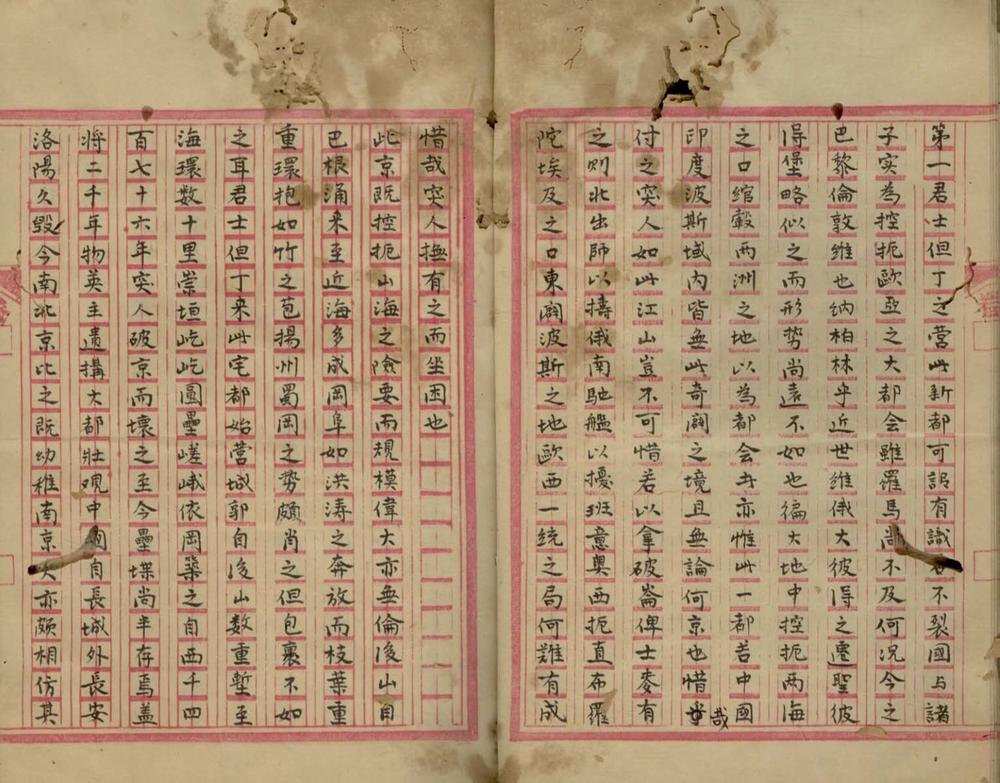 第一君士但丁之營此新都可謂有識若不裂國与諸
子实為控扼歐亞之大都会雖羅馬尚不及何况今之
巴黎倫敦維也纳柏林乎近世維俄大彼得之遷聖彼
得堡略似之而形势尚遠不如也徧大地中控扼两海
之口綰轂两洲之地以為都会者亦惟此一都若中國
印度波斯域内皆無此奇闢之境且無論何京也惜哉
付之突人如此江山豈不可惜若以拿破崙俾士麥有
之则北出師以擣俄南馳艦以擾班意奥西扼直布羅
陀埃及之口東闢波斯之地歐西一統之局何難有成
惜哉突人撫有之而坐困也
此京既控扼山海之險要而規模偉大亦無倫後山自
巴根涌来至近海多成岡阜如洪涛之奔放而枝葉重
重環抱如竹之苞揚州蜀岡之势頗肖之但包裹不如
之耳君士但丁来此宅都始营城郭自後山数重塹至
海環数十里崇垣屹屹圖壘嵯峨依岡築之自西千四
百七十六年突人破京而壞之至今壘堞尚半存焉盖
将二千年物英主遺搆大都壯观中國自長城外長安
洛陽久毀今南北京比之既幼稚南京大亦頗相仿其